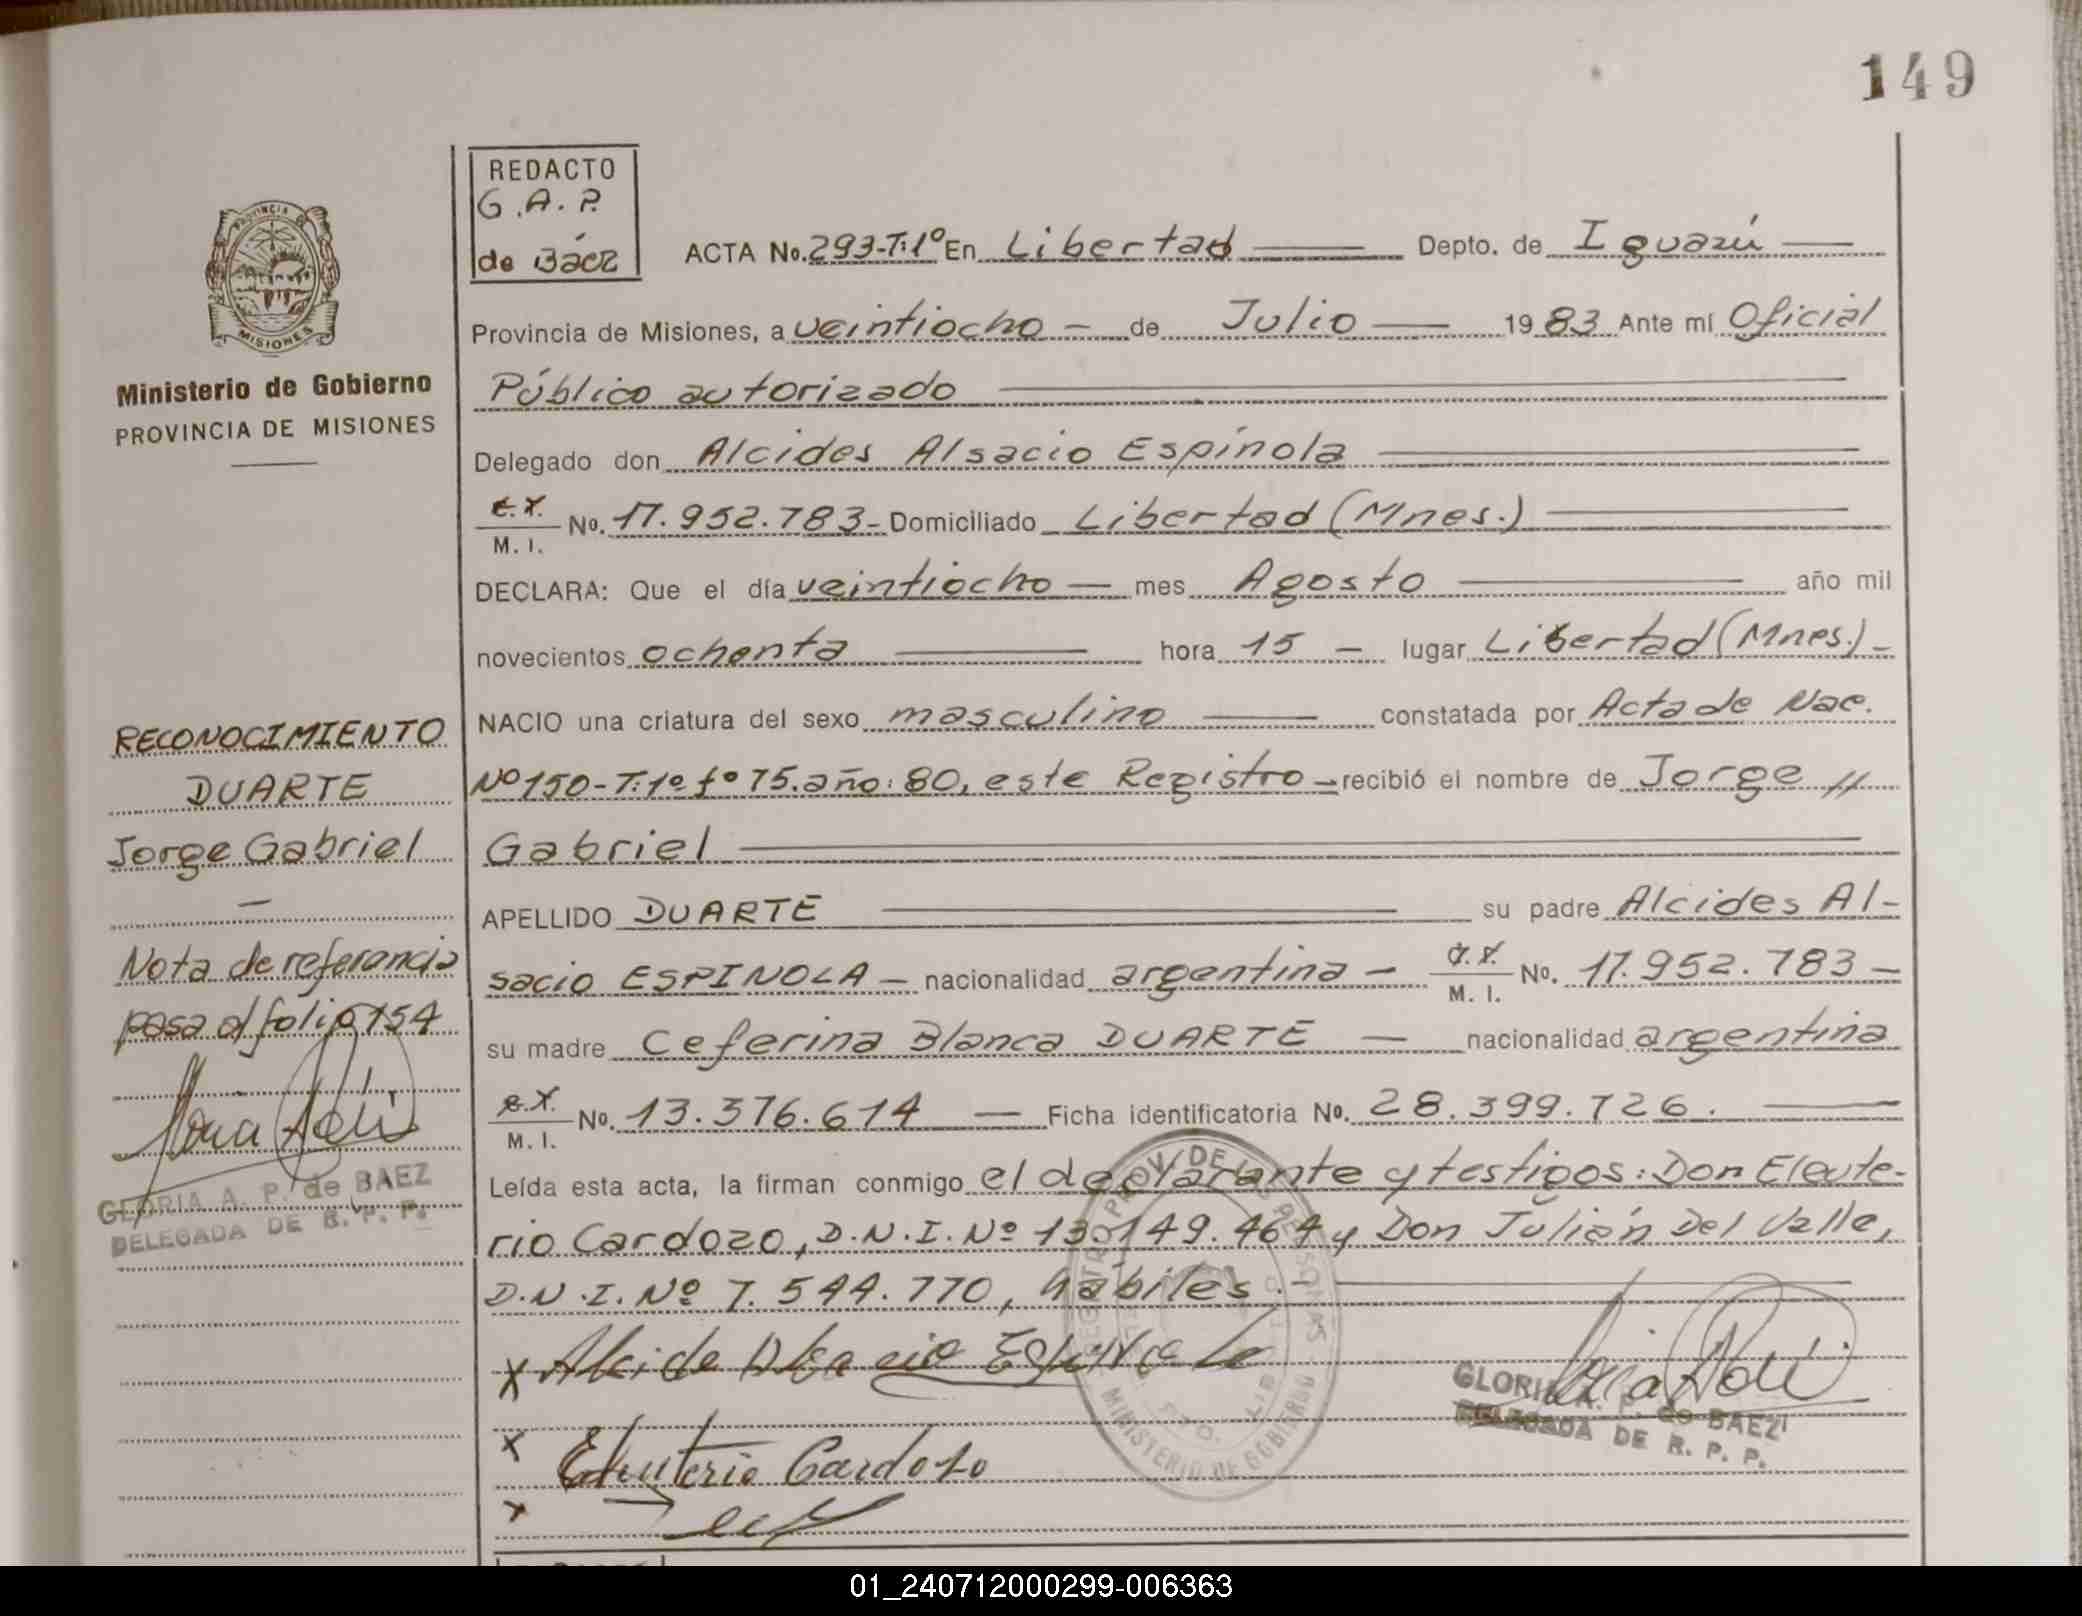 149
REDACTO
G.A.P.
de Báez
PROVINCIA DE
MISIONES
Ministerio de Gobierno
PROVINCIA DE MISIONES
ACTA No. 293-T:1º En Libertad Depto. de Iguazú
Provincia de Misiones, a veintiocho de Julio 1983 Ante mí Oficial
Público autorizado
Delegado don Alcides Alsacio Espínola
M. I. No. 17.952.783 Domiciliado Libertad (Mnes.)
DECLARA: Que el día veintiocho mes Agosto año mil
novecientos ochenta hora 15 lugar Libertad (Mnes.)
NACIO una criatura del sexo masculino constatada por Acta de Nac.
Nº 150-T:1º fº 75. año: 80, este Registro recibió el nombre de Jorge //
Gabriel
APELLIDO DUARTE su padre Alcides Al-
sacio ESPINOLA nacionalidad argentina M. I. No. 17.952.783
su madre Ceferina Blanca DUARTE nacionalidad argentina
M. I. No. 13.376.614 Ficha identificatoria No. 28.399.726.
Leída esta acta, la firman conmigo el declarante y testigos: Don Eleute-
rio Cardozo, D.N.I. Nº 13.149.464 y Don Julián Del Valle,
D.N.I. Nº 7.544.770, hábiles.
RECONOCIMIENTO
DUARTE
Jorge Gabriel
Nota de referencia
pasa al folio 154
GLORIA A. P. de BAEZ
DELEGADA DE R. P. P.
x Alcide Alsacio Espinola
x Eleuterio Cardozo
x
MINISTERIO DE GOBIERNO
GLORIA A. P. de BAEZ
DELEGADA DE R. P. P.
01_240712000299-006363